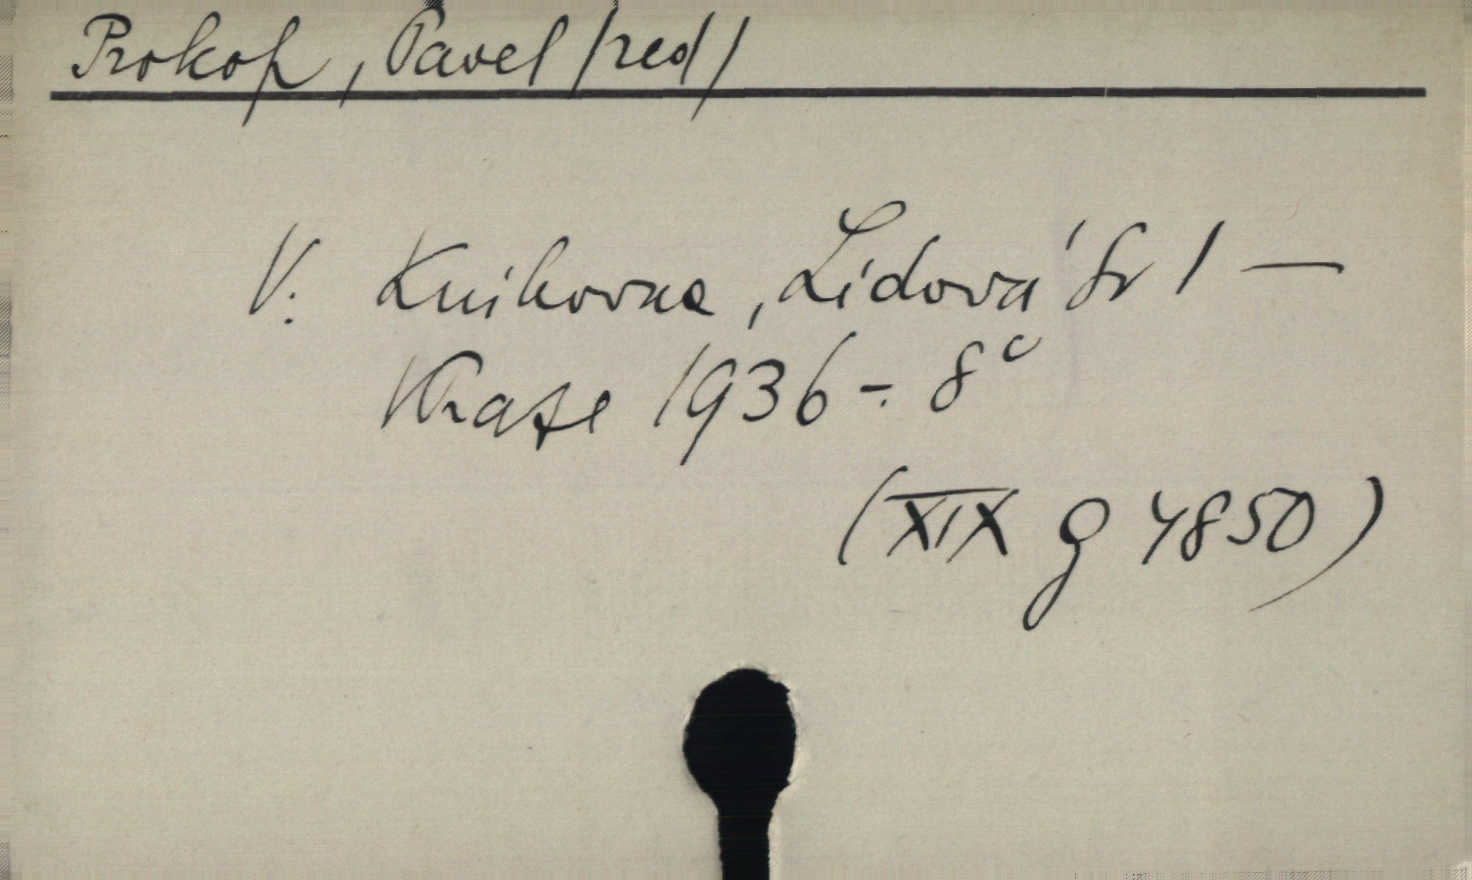 Prokop, Pavel /red/
V. Knihovna, Lidová Sv 1 —
V Praze 1936 -. 8°
(XIX g 4850)